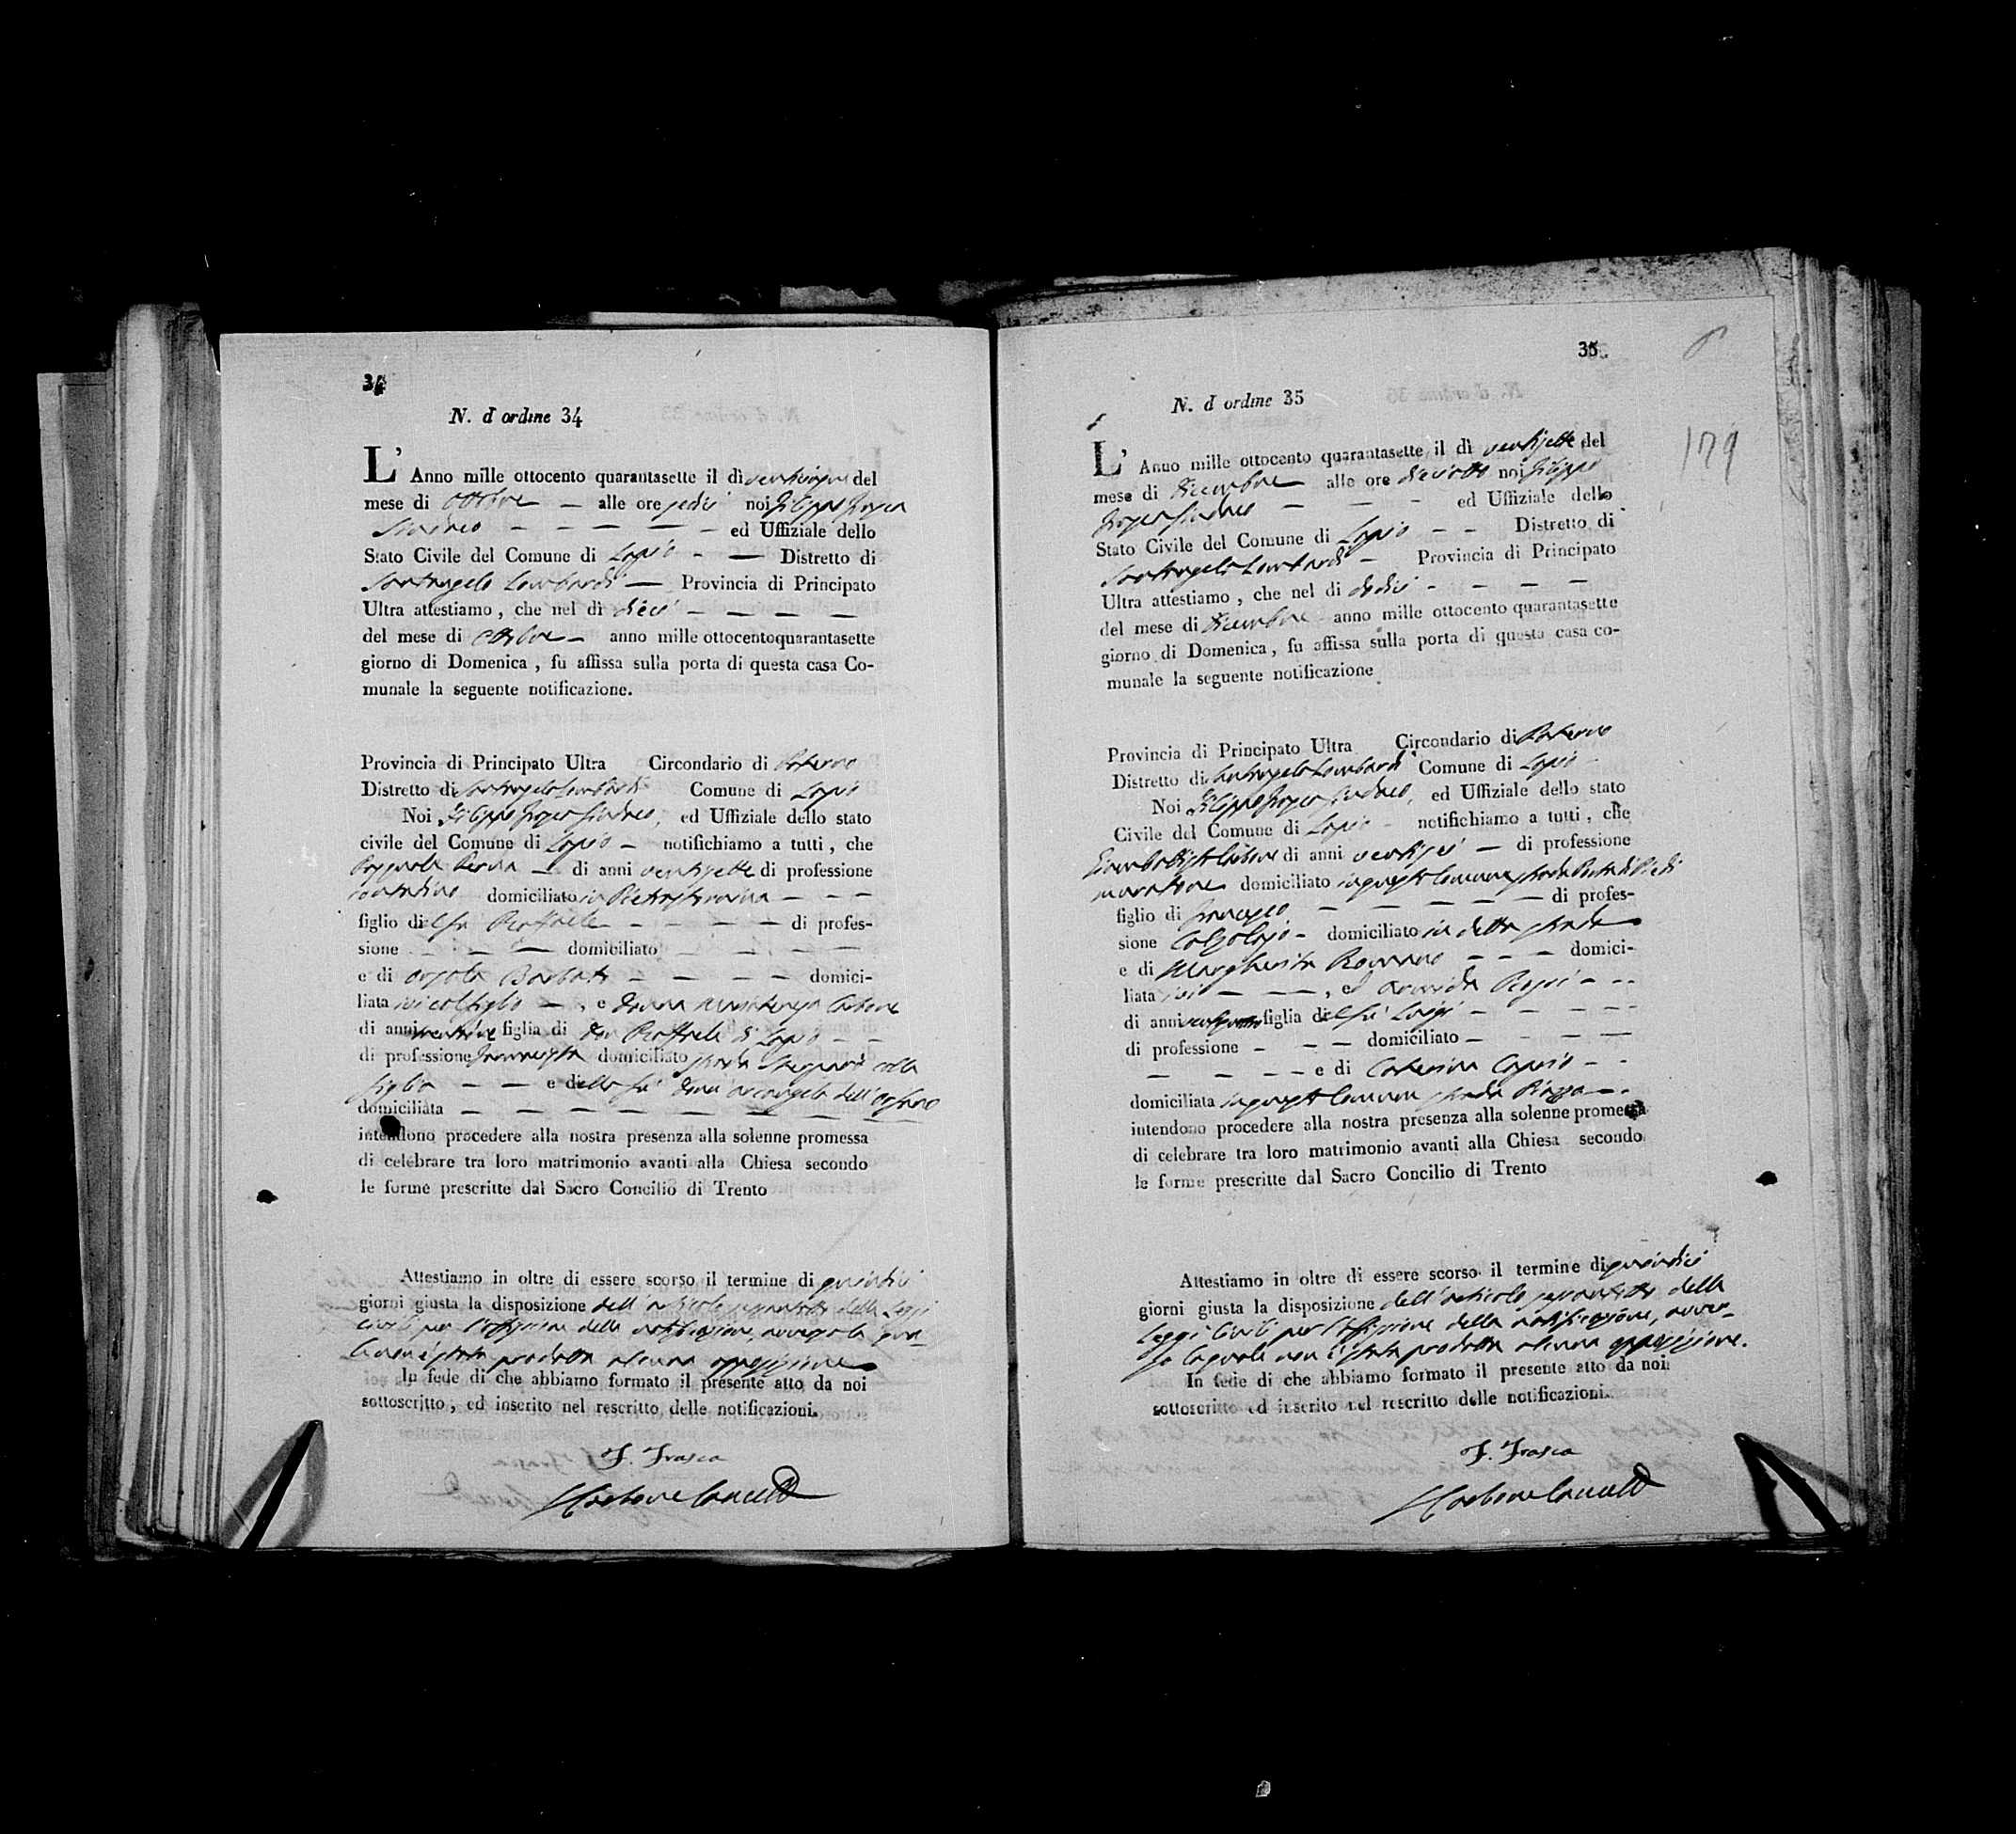 34
N. d ordine 34
L' Anno mille ottocento quarantasette il dì venticinque del
mese di Ottobre — alle ore sedici noi Filippo Frasca
Sindaco — — — — — ed Uffiziale dello
Stato Civile del Comune di Lapio - — Distretto di
Santangelo Lombardi — Provincia di Principato
Ultra attestiamo, che nel dì dieci — — — —
del mese di Ottobre — anno mille ottocentoquarantasette
giorno di Domenica, fu affissa sulla porta di questa casa Co-
munale la seguente notificazione.
Provincia di Principato Ultra Circondario di Paterno
Distretto di Santangelo Lombardi Comune di Lapio
Noi Filippo Frasca Sindaco, ed Uffiziale dello stato
civile del Comune di Lapio — notifichiamo a tutti, che
— di anni ventisette di professione
contadino domiciliato in Pietrastornina — — —
figlio del fu Raffaele — — — — di profes-
sione — — — domiciliato — — —
e di Orsola Barbati — — — — domici-
liata ivi col figlio —, e Donna Carbone
di anni figlia di Don Raffaele di Lapio — —
di professione domiciliato strada colla
figlia — — e della fu Donna Arcangela dell'
domiciliata — — — — — — —
intendono procedere alla nostra presenza alla solenne promessa
di celebrare tra loro matrimonio avanti alla Chiesa secondo
le forme prescritte dal Sacro Concilio di Trento
Attestiamo in oltre di essere scorso il termine di quindici
giorni giusta la disposizione dell'articolo sessantotto delle Leggi
civili per l'affissione della notificazione, avverso la qua-
le non è stata prodotta alcuna opposizione
In fede di che abbiamo formato il presente atto da noi
sottoscritto, ed inserito nel rescritto delle notificazioni.
F. Frasca
Carbone Cancell
35
179
N. d ordine 35
L' Anno mille ottocento quarantasette il dì ventisette del
mese di Dicembre alle ore dieciotto noi Filippo
Frasca Sindaco — — — ed Uffiziale dello
Stato Civile del Comune di Lapio — — Distretto di
Santangelo Lombardi — Provincia di Principato
Ultra attestiamo, che nel di dodici - — — —
del mese di Dicembre anno mille ottocento quarantasette
giorno di Domenica, fu affissa sulla porta di questa casa co-
munale la seguente notificazione
Provincia di Principato Ultra Circondario di Paterno
Distretto di Santangelo Lombardi Comune di Lapio -
Noi Filippo Frasca Sindaco, ed Uffiziale dello stato
Civile del Comune di Lapio - notifichiamo a tutti, che
Carbone di anni ventisei — di professione
muratore domiciliato in questo Comune strada
figlio di Francesco — — — — — di profes-
sione Calzolajo - domiciliato in detta strada
e di Margherita Romano — — — domici-
liata ivi — — —, e Reppi - --
di anni figlia del fu Luigi - — — --
di professione - — — domiciliato — — — —
— — — — e di Caterina Caprio - -
domiciliata in questo Comune strada Piazza — -
intendono procedere alla nostra presenza alla solenne promessa
di celebrare tra loro matrimonio avanti alla Chiesa secondo
le forme prescritte dal Sacro Concilio di Trento
Attestiamo in oltre di essere scorso il termine di quindici
giorni giusta la disposizione dell'articolo sessantotto delle
Leggi Civili per l'affissione della notificazione, avver-
so la quale non è stata prodotta alcuna opposizione.
In fede di che abbiamo formato il presente atto da noi
sottoscritto ed inserito nel rescritto delle notificazioni.
F. Frasca
Carbone Cancell